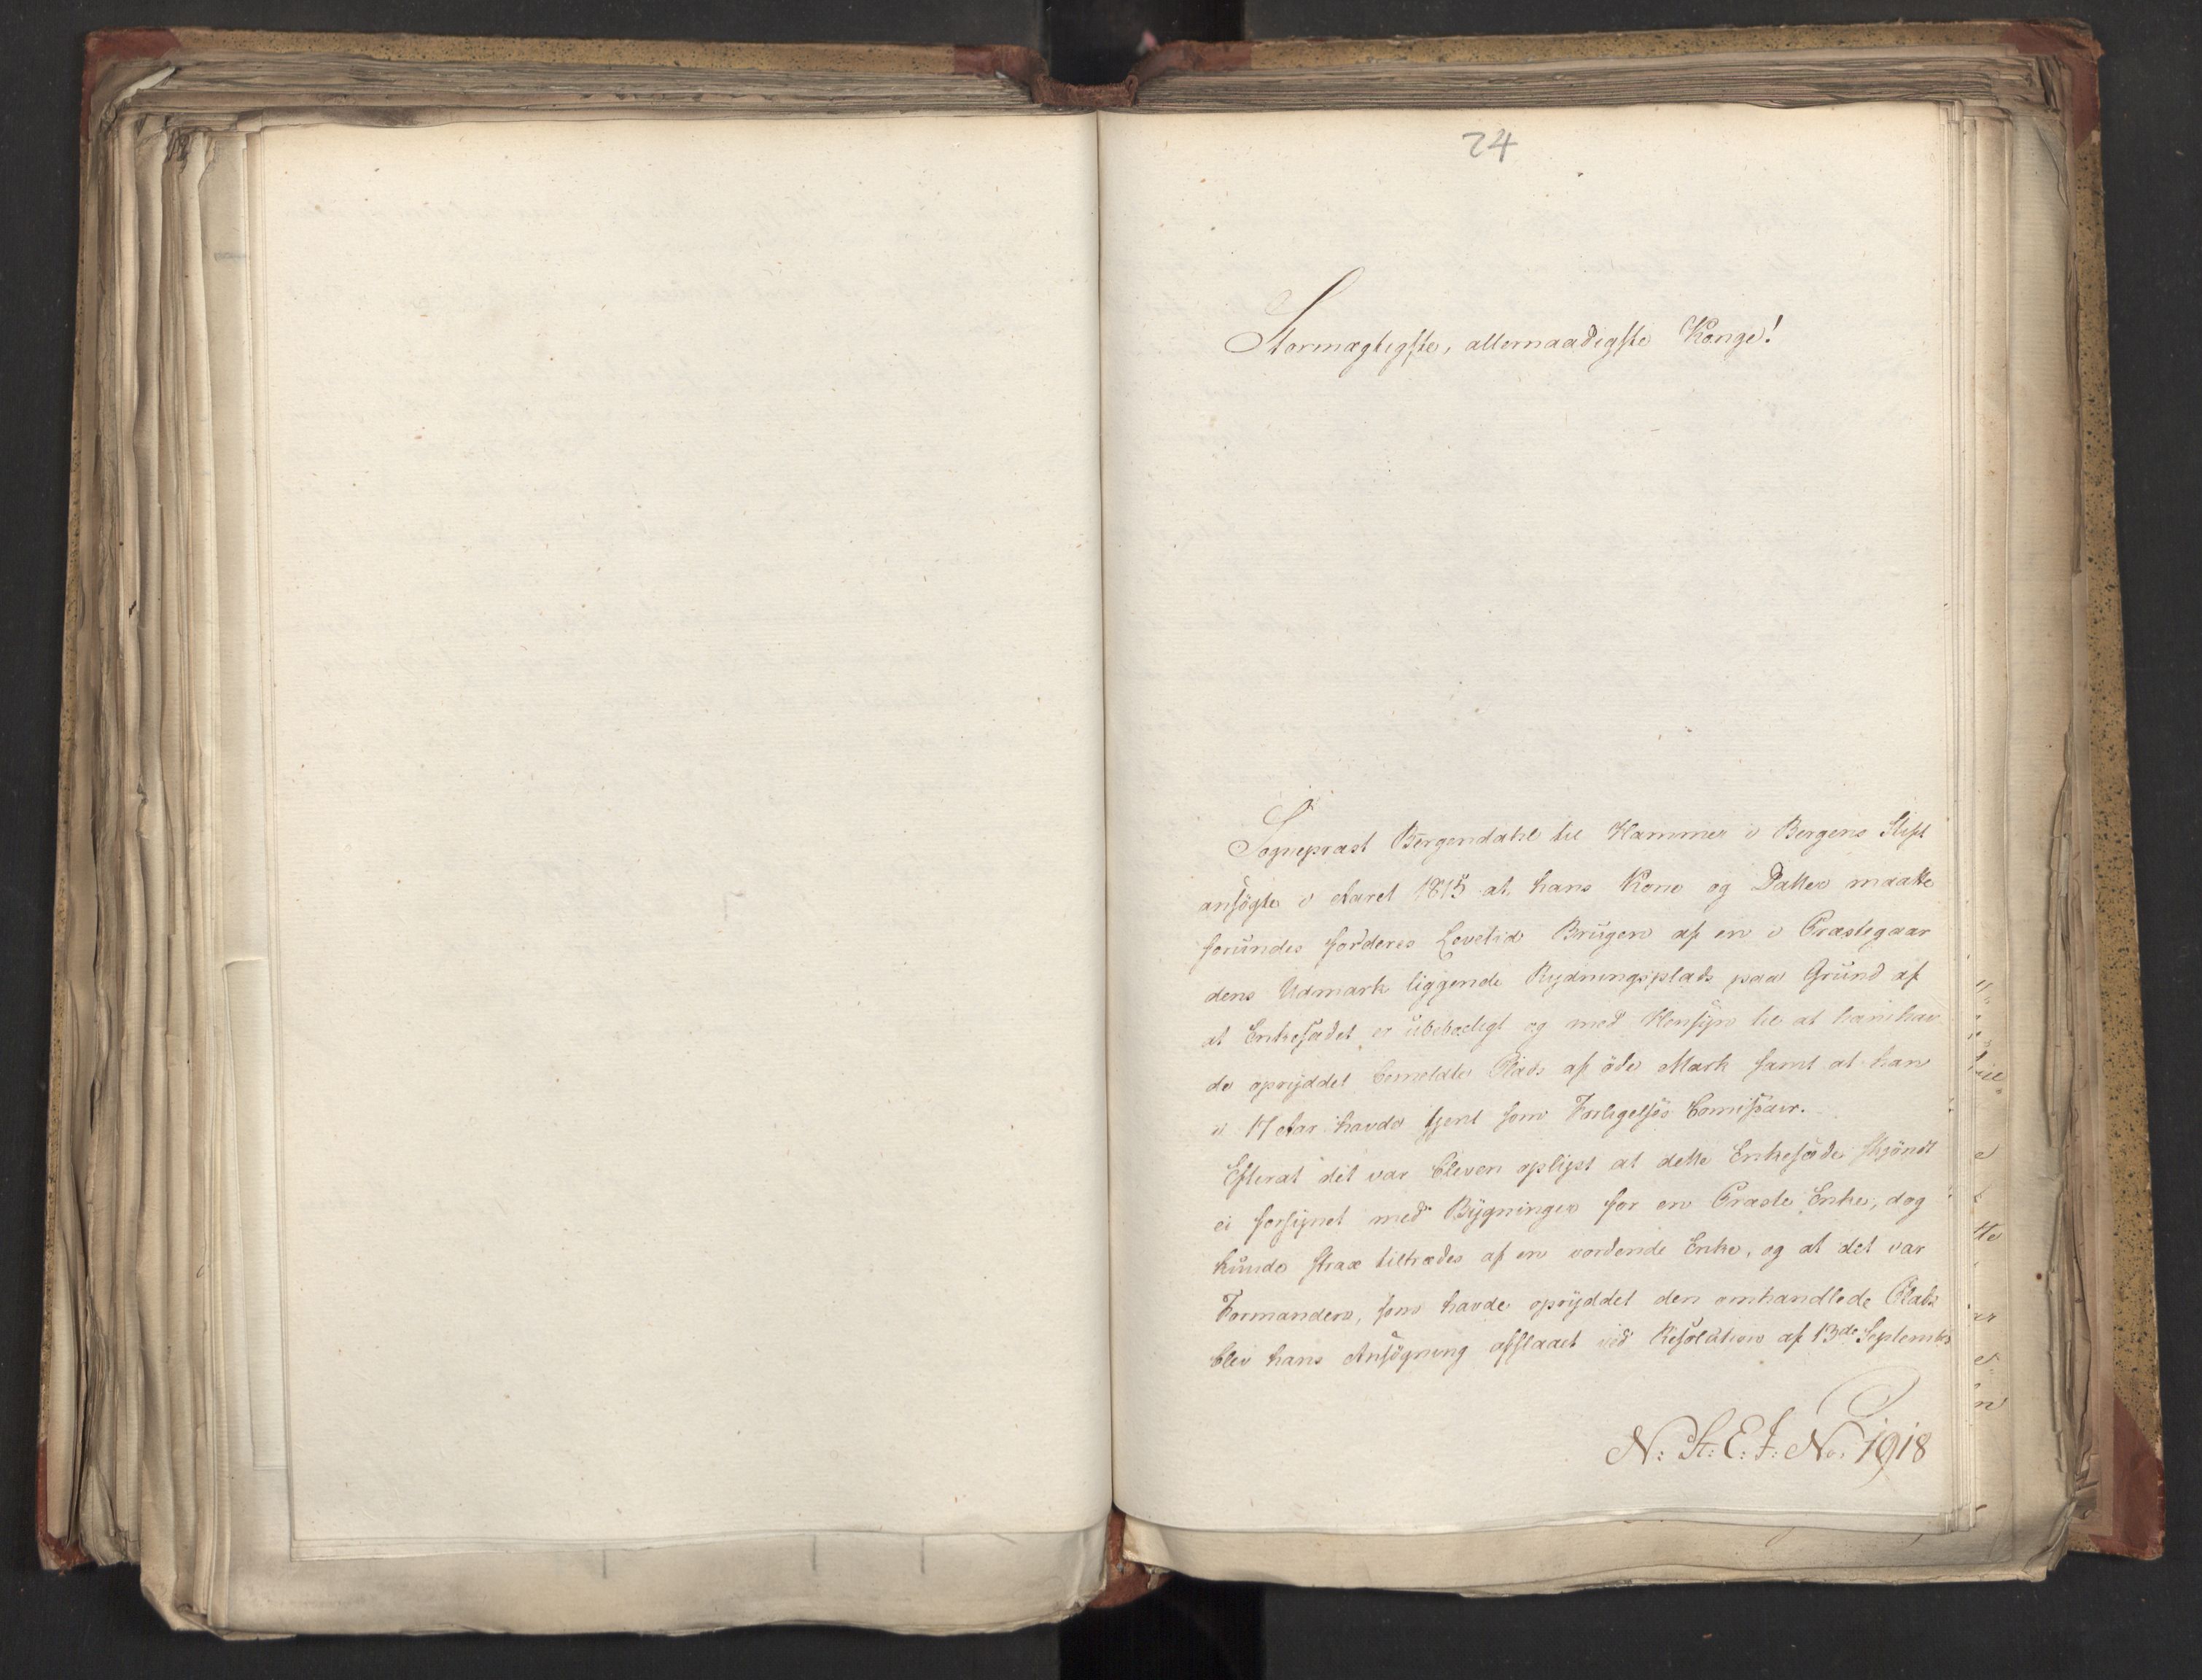 24
Stormægtigste, allernaadigste Konge!
Sognepræst Bergendahl til Hammer i Bergens Stift
ansögte i Aaret 1815 at hans Kone og Datter maatte
forundes for deres Levetid Brugen af en i Præstegaar
dens Udmark liggende Rydningsplads paa Grund af
at Enkesædet er ubebodligt og med Hensyn til at han hav
de opryddet bemeldte Plads af öde Mark samt at han
i 17 Aar havde tjent som Forligelses Comissair.
Efterat det var bleven oplyst at dette Enkesæde skjöndt
ei forsynet med Bygninger for en Præste Enke, dog
kunde strax tiltrædes af en vordende Enke, og at det var
Formanden, som havde opryddet den omhandlede Plads
blev hans Ansögning afslaaet ved Resolution af 13de Septembr
N: St: E: J: No. 1918